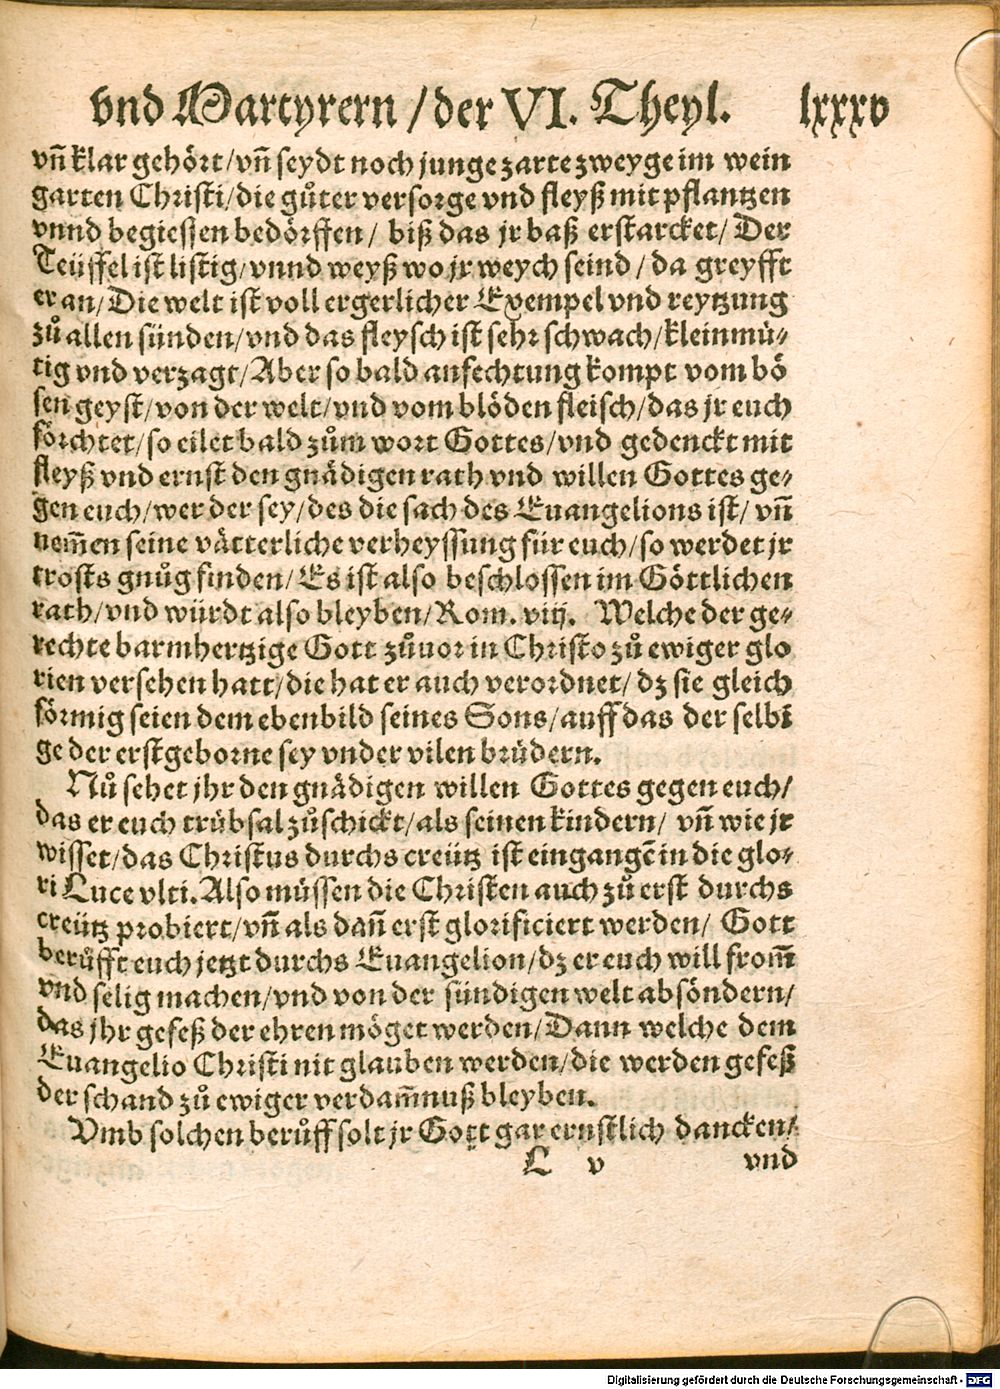 vnd Martyrern / der VI. Theyl. lxxxv
vñ klar gehört/vñ seydt noch junge zarte zweyge im wein
garten Christi/die gůter versorge vnd fleyß mit pflantzen
vnnd begiessen bedörffen/ biß das jr baß erstarcket/ Der
Teüffel ist listig/vnnd weyß wo jr weych seind / da greyfft
er an/Die welt ist voll ergerlicher Exempel vnd reytzung
zů allen sünden/vnd das fleysch ist sehr schwach/kleinmü-
tig vnd verzagt/Aber so bald anfechtung kompt vom bö
sen geyst/von der welt/vnd vom blöden fleisch/das jr euch
förchtet/so eilet bald zům wort Gottes/vnd gedenckt mit
fleyß vnd ernst den gnädigen rath vnd willen Gottes ge-
gen euch/wer der sey/des die sach des Euangelions ist/ vñ
nem̃en seine vätterliche verheyssung für euch/so werdet jr
trosts gnůg finden/Es ist also beschlossen im Göttlichen
rath/vnd würdt also bleyben/Rom. viij. Welche der ge-
rechte barmhertzige Gott zůuor in Christo zů ewiger glo
rien versehen hatt/die hat er auch verordnet/ dz sie gleich
förmig seien dem ebenbild seines Sons/auff das der selbi
ge der erstgeborne sey vnder vilen brüdern.
Nů sehet jhr den gnädigen willen Gottes gegen euch/
das er euch trübsal zůschickt/als seinen kindern/ vñ wie jr
wisset/das Christus durchs creütz ist eingangẽ in die glo-
ri Luce vlti. Also müssen die Christen auch zů erst durchs
creütz probiert/vñ als dañ erst glorificiert werden/ Gott
berůfft euch jetzt durchs Euangelion/dz er euch will from̃
vnd selig machen/vnd von der sündigen welt absöndern/
das jhr gefeß der ehren möget werden/Dann welche dem
Euangelio Christi nit glauben werden/die werden gefeß
der schand zů ewiger verdam̃nuß bleyben.
Vmb solchen berůff solt jr Gott gar ernstlich dancken/
L v vnd
Digitalisierung gefördert durch die Deutsche Forschungsgemeinschaft - DFG